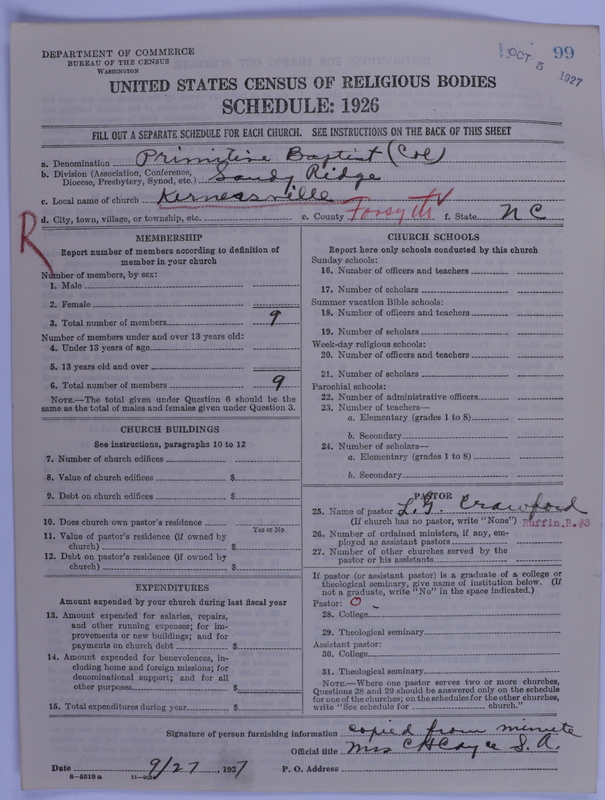 DEPARTMENT OF COMMERCE
BUREAU OF THE CENSUS
WASHINGTON
OCT 5 1927
99
UNITED STATES CENSUS OF RELIGIOUS BODIES
SCHEDULE: 1926
FILL OUT A SEPARATE SCHEDULE FOR EACH CHURCH. SEE INSTRUCTIONS ON THE BACK OF THIS SHEET
a. Denomination Primitive Baptist (Col)
b. Division (Association, Conference,
Diocese, Presbytery, Synod, etc.) Sandy Ridge
c. Local name of church Kernersville
d. City, town, village, or township, etc. e. County Forsyth f. State NC
R
MEMBERSHIP
Report number of members according to definition of
member in your church
Number of members, by sex:
1. Male
2. Female
3. Total number of members 9
Number of members under and over 13 years old:
4. Under 13 years of age
5. 13 years old and over
6. Total number of members 9
NOTE.—The total given under Question 6 should be the
same as the total of males and females given under Question 3.
CHURCH BUILDINGS
See instructions, paragraphs 10 to 12
7. Number of church edifices
8. Value of church edifices $
9. Debt on church edifices $
10. Does church own pastor's residence
Yes or No
11. Value of pastor's residence (if owned by
church) $
12. Debt on pastor's residence (if owned by
church) $
EXPENDITURES
Amount expended by your church during last fiscal year
13. Amount expended for salaries, repairs,
and other running expenses; for im-
provements or new buildings; and for
payments on church debt $
14. Amount expended for benevolences, in-
cluding home and foreign missions; for
denominational support; and for all
other purposes $
15. Total expenditures during year $
CHURCH SCHOOLS
Report here only schools conducted by this church
Sunday schools:
16. Number of officers and teachers
17. Number of scholars
Summer vacation Bible schools:
18. Number of officers and teachers
19. Number of scholars
Week-day religious schools:
20. Number of officers and teachers
21. Number of scholars
Parochial schools:
22. Number of administrative officers
23. Number of teachers—
a. Elementary (grades 1 to 8)
b. Secondary
24. Number of scholars—
a. Elementary (grades 1 to 8)
b. Secondary
PASTOR
25. Name of pastor L.G. Crawford
(If church has no pastor, write "None") Ruffin, R. #3
26. Number of ordained ministers, if any, em-
ployed as assistant pastors
27. Number of other churches served by the
pastor or his assistants
If pastor (or assistant pastor) is a graduate of a college or
theological seminary, give name of institution below. (If
not a graduate, write "No" in the space indicated.)
Pastor: O
28. College
29. Theological seminary
Assistant pastor:
30. College
31. Theological seminary
NOTE.—Where one pastor serves two or more churches,
Questions 28 and 29 should be answered only on the schedule
for one of the churches; on the schedules for the other churches,
write "See schedule for church."
Signature of person furnishing information copied from minute
Official title Mrs C H Cayce S. A.
Date 9/27, 1927 P. O. Address
8—5518a